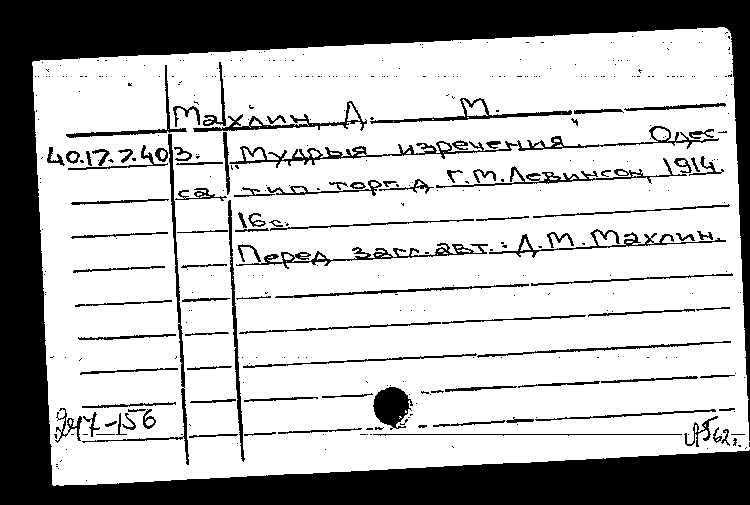 Махлин, Д. М.
40.17.7.403. "Мудрыя изречения". Одес-
са, тип. торг. д. Г.М. Левинсон, 1914.
16 с.
Перед загл. авт.: Д.М. Махлин.
247-156
62 г.